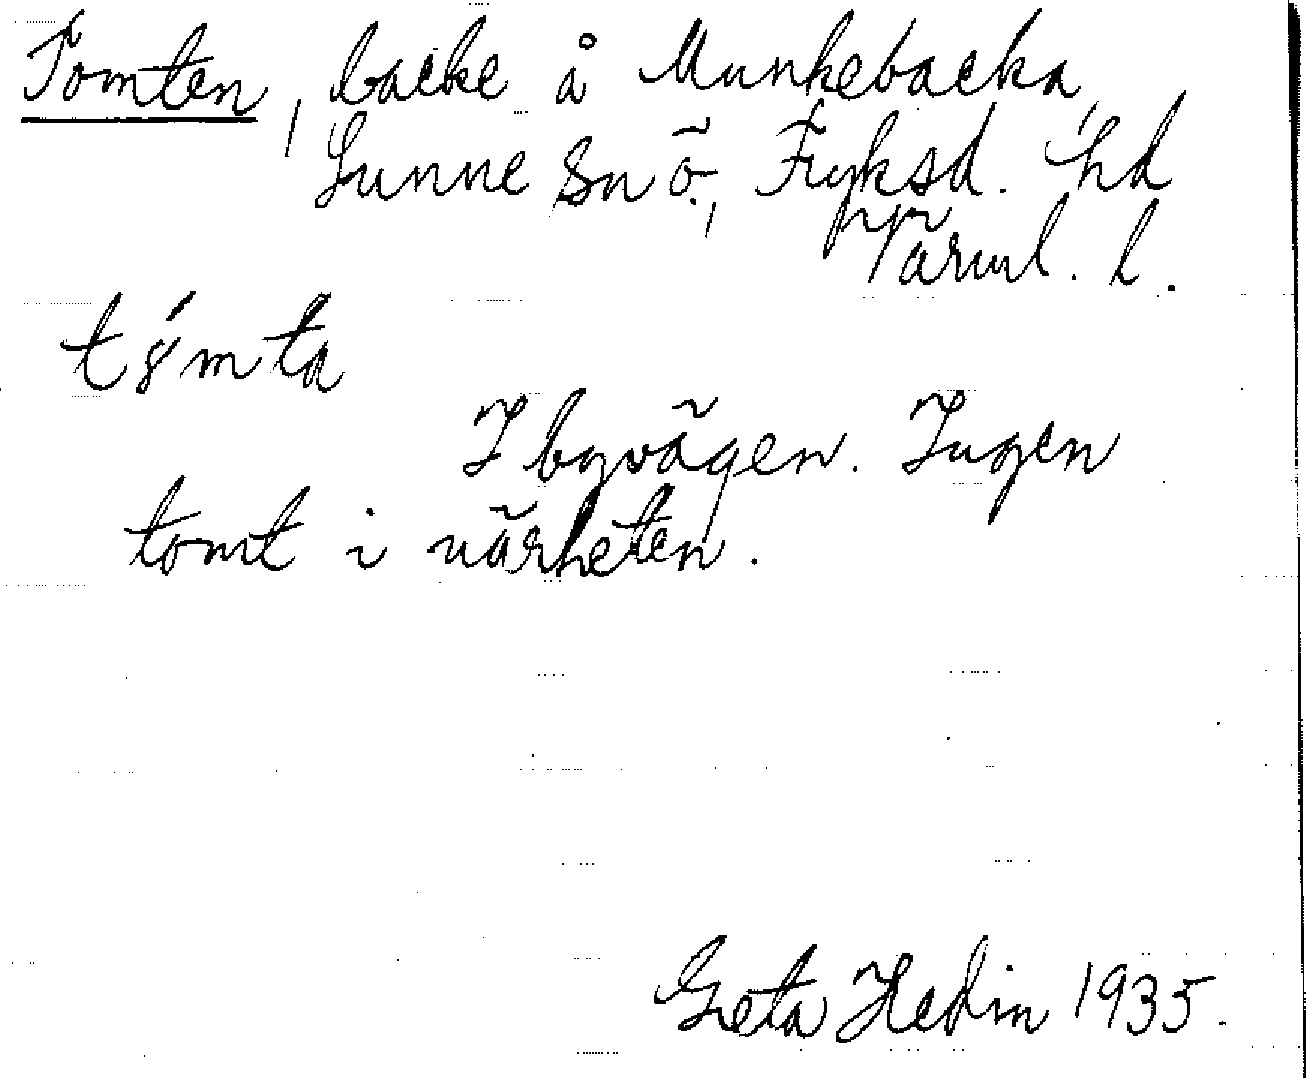 Tomten, backe å Munkebacka,
Sunne sn ö, Fryksd. hd
Värml. l.
I byvägen. Ingen
tomt i närheten.
Greta Hedin 1935.